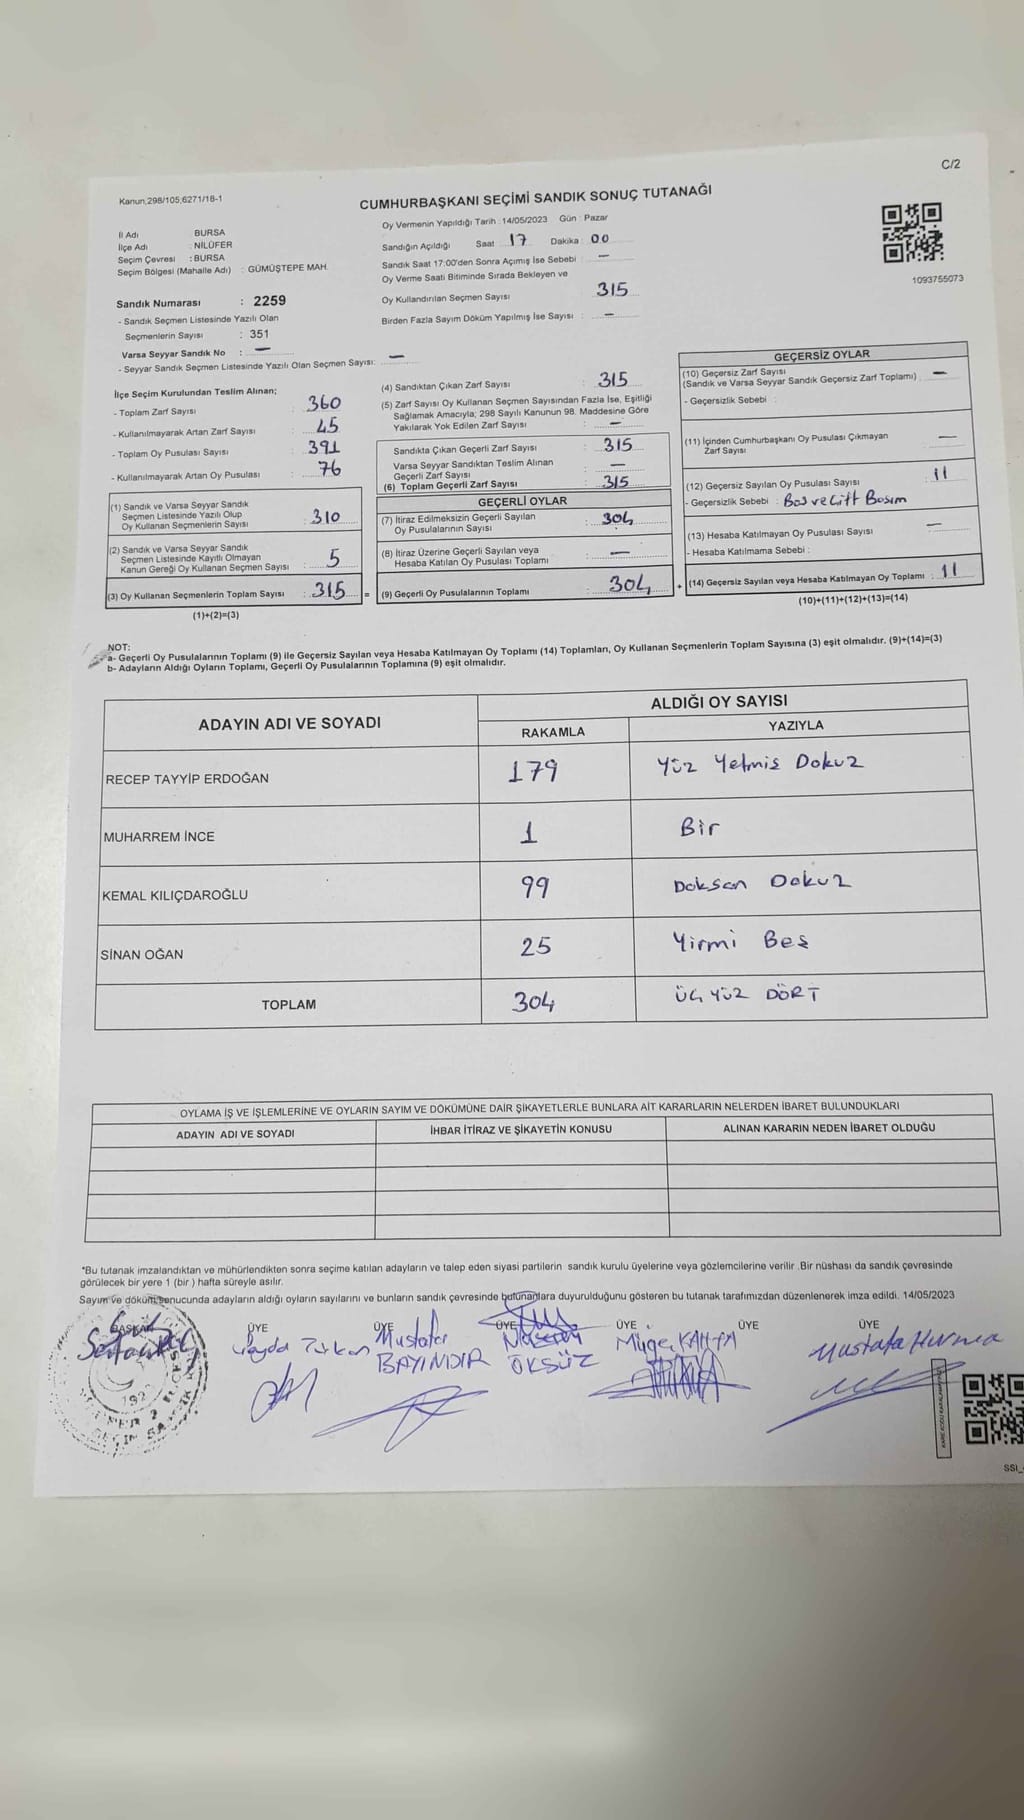 C/2
Kanun,298/105,6271/18-1
CUMHURBAŞKANI SEÇİMİ SANDIK SONUÇ TUTANAĞI
İl Adı BURSA
İlçe Adı : NİLÜFER
Seçim Çevresi : BURSA
Seçim Bölgesi (Mahalle Adı) : GÜMÜŞTEPE MAH.
Sandık Numarası : 2259
- Sandık Seçmen Listesinde Yazılı Olan
Seçmenlerin Sayısı : 351
Varsa Seyyar Sandık No : —
- Seyyar Sandık Seçmen Listesinde Yazılı Olan Seçmen Sayısı: —
Oy Vermenin Yapıldığı Tarih : 14/05/2023 Gün : Pazar
Sandığın Açıldığı Saat 17 Dakika 00
Sandık Saat 17:00'den Sonra Açımış İse Sebebi : —
Oy Verme Saati Bitiminde Sırada Bekleyen ve
Oy Kullandırılan Seçmen Sayısı 315
Birden Fazla Sayım Döküm Yapılmış İse Sayısı : —
1093755073
İlçe Seçim Kurulundan Teslim Alınan;
- Toplam Zarf Sayısı : 360
- Kullanılmayarak Artan Zarf Sayısı : 45
- Toplam Oy Pusulası Sayısı : 391
- Kullanılmayarak Artan Oy Pusulası : 76
(1) Sandık ve Varsa Seyyar Sandık
Seçmen Listesinde Yazılı Olup
Oy Kullanan Seçmenlerin Sayısı : 310
(2) Sandık ve Varsa Seyyar Sandık
Seçmen Listesinde Kayıtlı Olmayan
Kanun Gereği Oy Kullanan Seçmen Sayısı : 5
(3) Oy Kullanan Seçmenlerin Toplam Sayısı : 315 =
(1)+(2)=(3)
(4) Sandıktan Çıkan Zarf Sayısı : 315
(5) Zarf Sayısı Oy Kullanan Seçmen Sayısından Fazla İse, Eşitliği
Sağlamak Amacıyla; 298 Sayılı Kanunun 98. Maddesine Göre
Yakılarak Yok Edilen Zarf Sayısı : —
Sandıkta Çıkan Geçerli Zarf Sayısı : 315
Varsa Seyyar Sandıktan Teslim Alınan
Geçerli Zarf Sayısı : —
(6) Toplam Geçerli Zarf Sayısı : 315
GEÇERLİ OYLAR
(7) İtiraz Edilmeksizin Geçerli Sayılan
Oy Pusulalarının Sayısı : 304
(8) İtiraz Üzerine Geçerli Sayılan veya
Hesaba Katılan Oy Pusulası Toplamı : —
(9) Geçerli Oy Pusulalarının Toplamı : 304 +
GEÇERSİZ OYLAR
(10) Geçersiz Zarf Sayısı
(Sandık ve Varsa Seyyar Sandık Geçersiz Zarf Toplamı) : —
- Geçersizlik Sebebi :
(11) İçinden Cumhurbaşkanı Oy Pusulası Çıkmayan
Zarf Sayısı —
(12) Geçersiz Sayılan Oy Pusulası Sayısı 11
- Geçersizlik Sebebi : Boş ve Çift Basım
(13) Hesaba Katılmayan Oy Pusulası Sayısı —
- Hesaba Katılmama Sebebi :
(14) Geçersiz Sayılan veya Hesaba Katılmayan Oy Toplamı : 11
(10)+(11)+(12)+(13)=(14)
NOT:
a- Geçerli Oy Pusulalarının Toplamı (9) ile Geçersiz Sayılan veya Hesaba Katılmayan Oy Toplamı (14) Toplamları, Oy Kullanan Seçmenlerin Toplam Sayısına (3) eşit olmalıdır. (9)+(14)=(3)
b- Adayların Aldığı Oyların Toplamı, Geçerli Oy Pusulalarının Toplamına (9) eşit olmalıdır.
ADAYIN ADI VE SOYADI ALDIĞI OY SAYISI
RAKAMLA YAZIYLA
RECEP TAYYİP ERDOĞAN 179 Yüz Yetmiş Dokuz
MUHARREM İNCE 1 Bir
KEMAL KILIÇDAROĞLU 99 Doksan Dokuz
SİNAN OĞAN 25 Yirmi Beş
TOPLAM 304 ÜÇ YÜZ DÖRT
OYLAMA İŞ VE İŞLEMLERİNE VE OYLARIN SAYIM VE DÖKÜMÜNE DAİR ŞİKAYETLERLE BUNLARA AİT KARARLARIN NELERDEN İBARET BULUNDUKLARI
ADAYIN ADI VE SOYADI İHBAR İTİRAZ VE ŞİKAYETİN KONUSU ALINAN KARARIN NEDEN İBARET OLDUĞU
*Bu tutanak imzalandıktan ve mühürlendikten sonra seçime katılan adayların ve talep eden siyasi partilerin sandık kurulu üyelerine veya gözlemcilerine verilir .Bir nüshası da sandık çevresinde
görülecek bir yere 1 (bir ) hafta süreyle asılır.
Sayım ve döküm sonucunda adayların aldığı oyların sayılarını ve bunların sandık çevresinde bulunanlara duyurulduğunu gösteren bu tutanak tarafımızdan düzenlenerek imza edildi. 14/05/2023
BAŞKAN ÜYE ÜYE ÜYE ÜYE ÜYE ÜYE
Mustafa Müge Mustafa
BAYINDIR ÖKSÜZ
SSI_